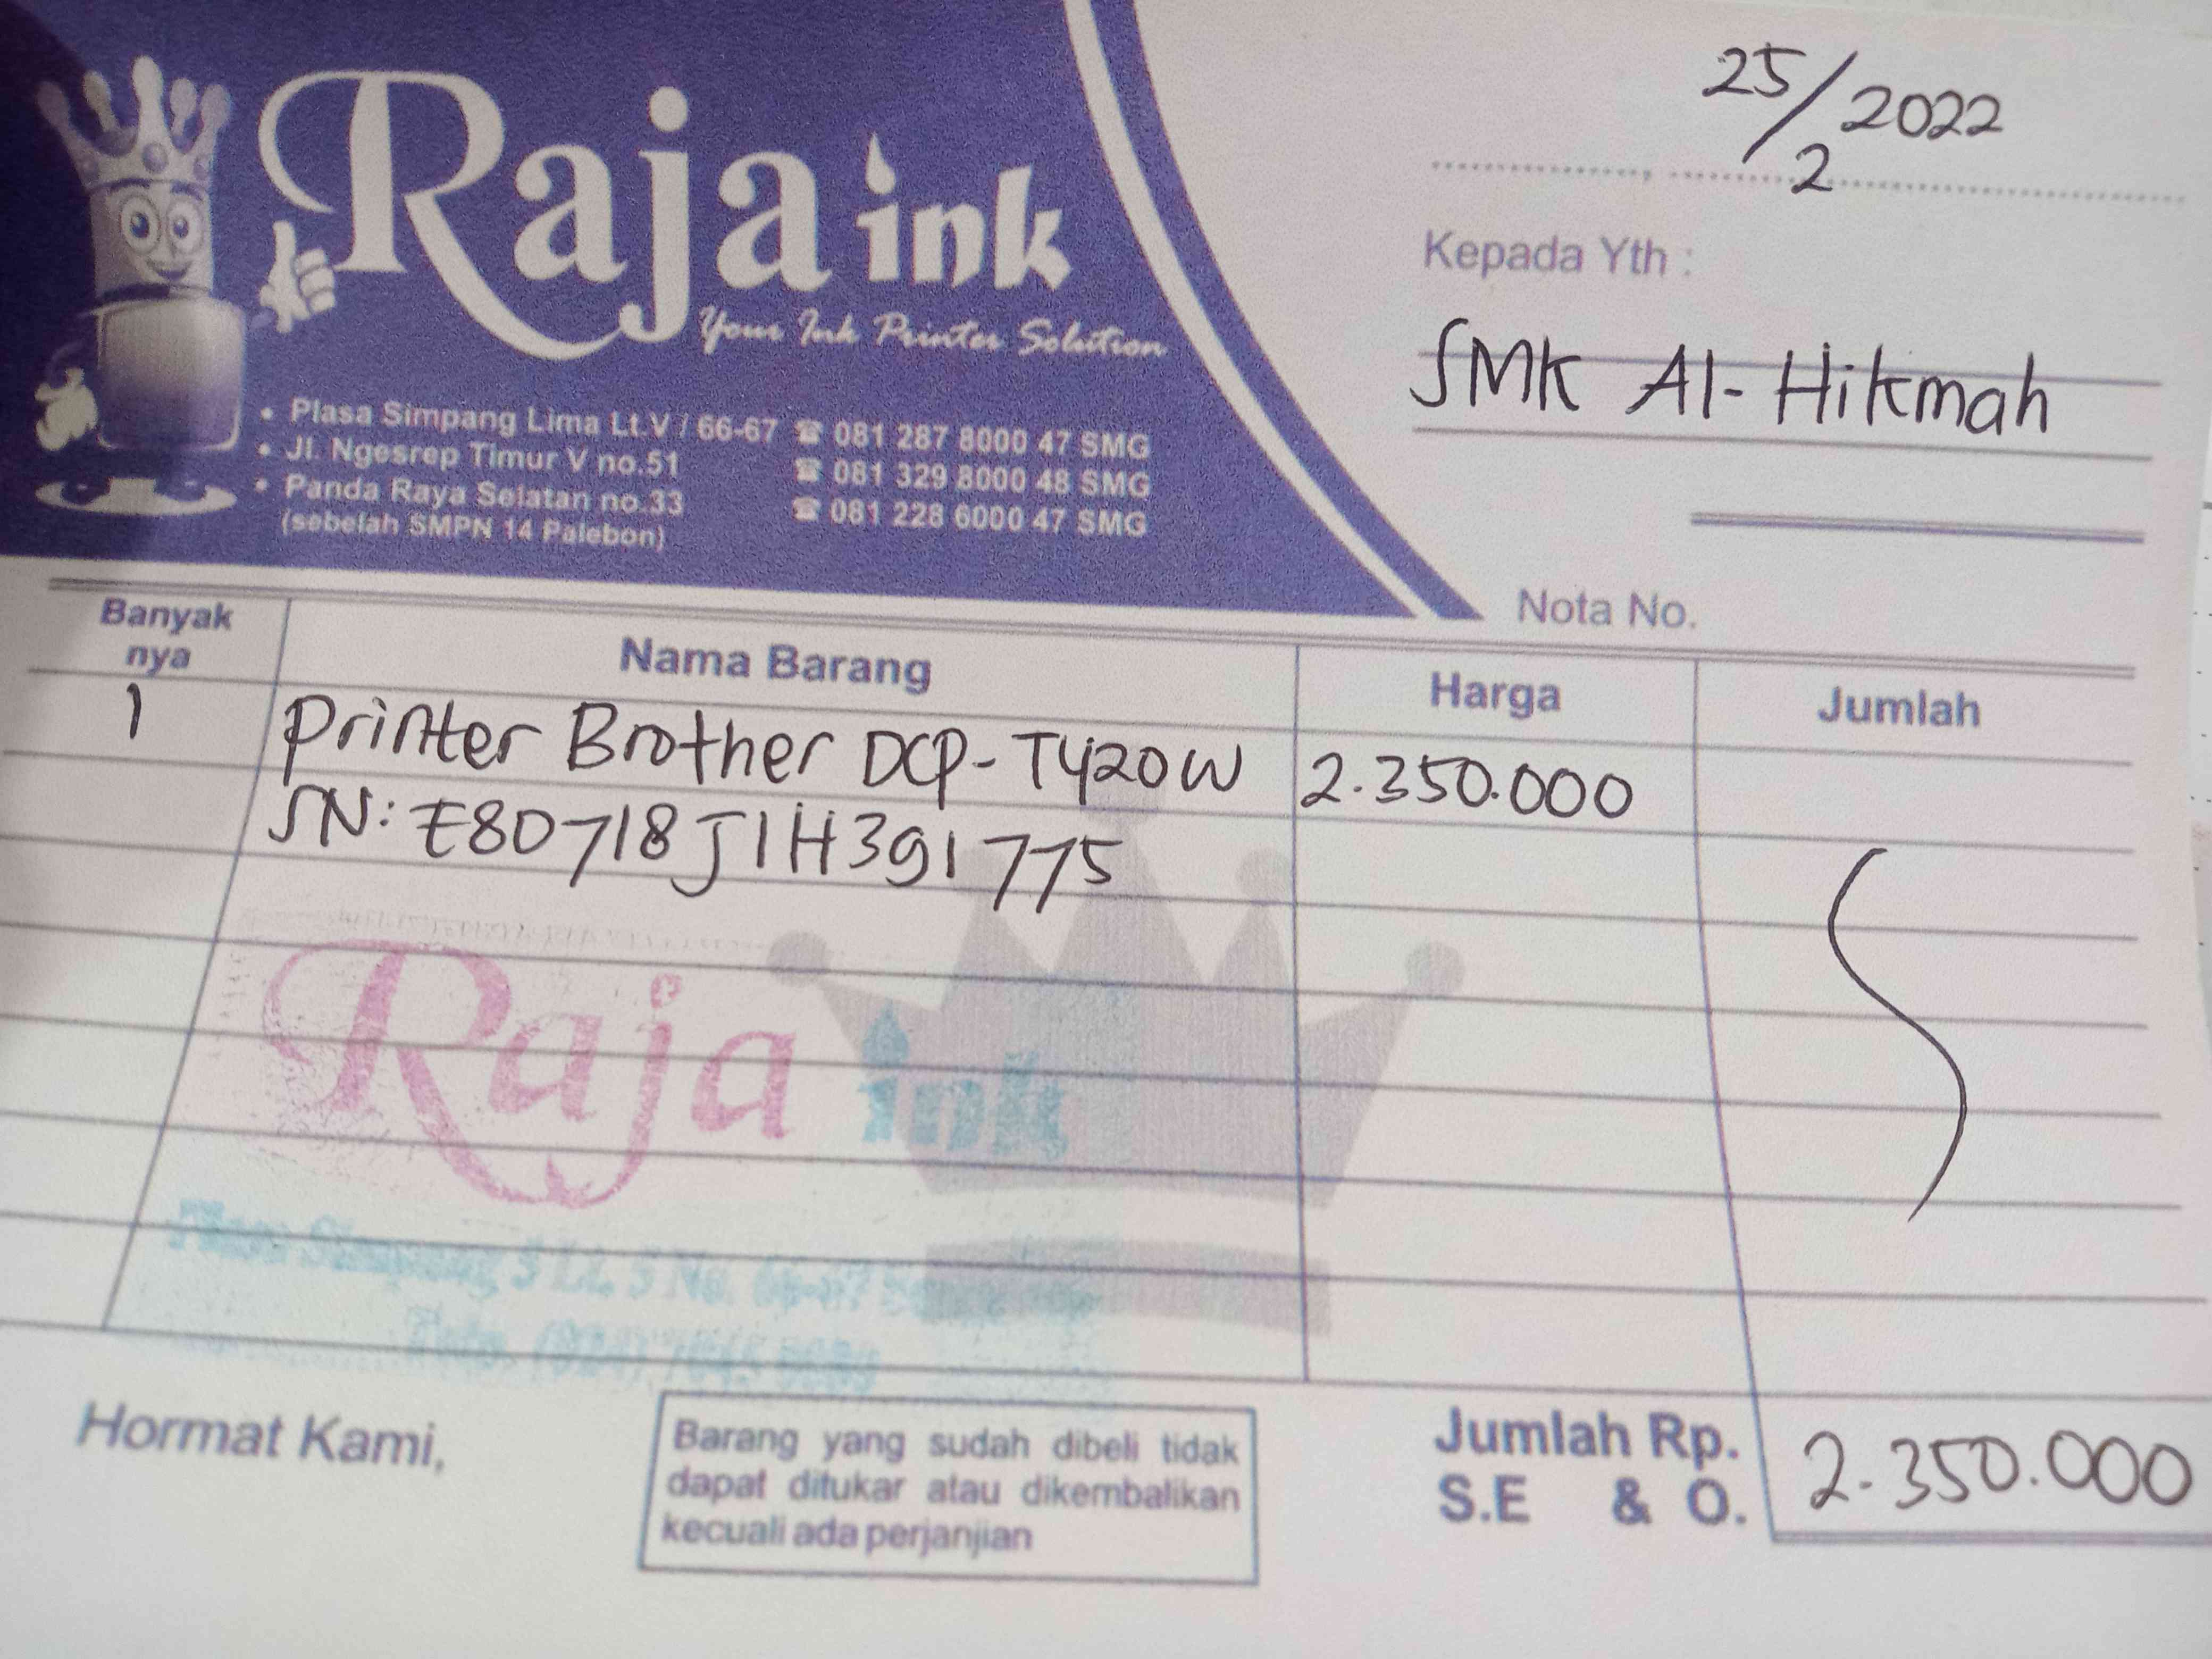 Raja ink
Your Ink Printer Solution
• Plasa Simpang Lima Lt.V / 66-67 ☎ 081 287 8000 47 SMG
• Jl. Ngesrep Timur V no.51 ☎ 081 329 8000 48 SMG
• Panda Raya Selatan no.33 ☎ 081 228 6000 47 SMG
(sebelah SMPN 14 Palebon)
25/2 2022
Kepada Yth :
SMK Al-Hikmah
Nota No.
Banyak nya Nama Barang Harga Jumlah
1 Printer Brother DCP-T420W 2.350.000
SN: E80718J1H391775
Raja ink
Plasa Simpang 5 Lt. 5 No. 66-67
Telp. (024)
Hormat Kami,
Barang yang sudah dibeli tidak
dapat ditukar atau dikembalikan
kecuali ada perjanjian
Jumlah Rp. 2.350.000
S.E & O.